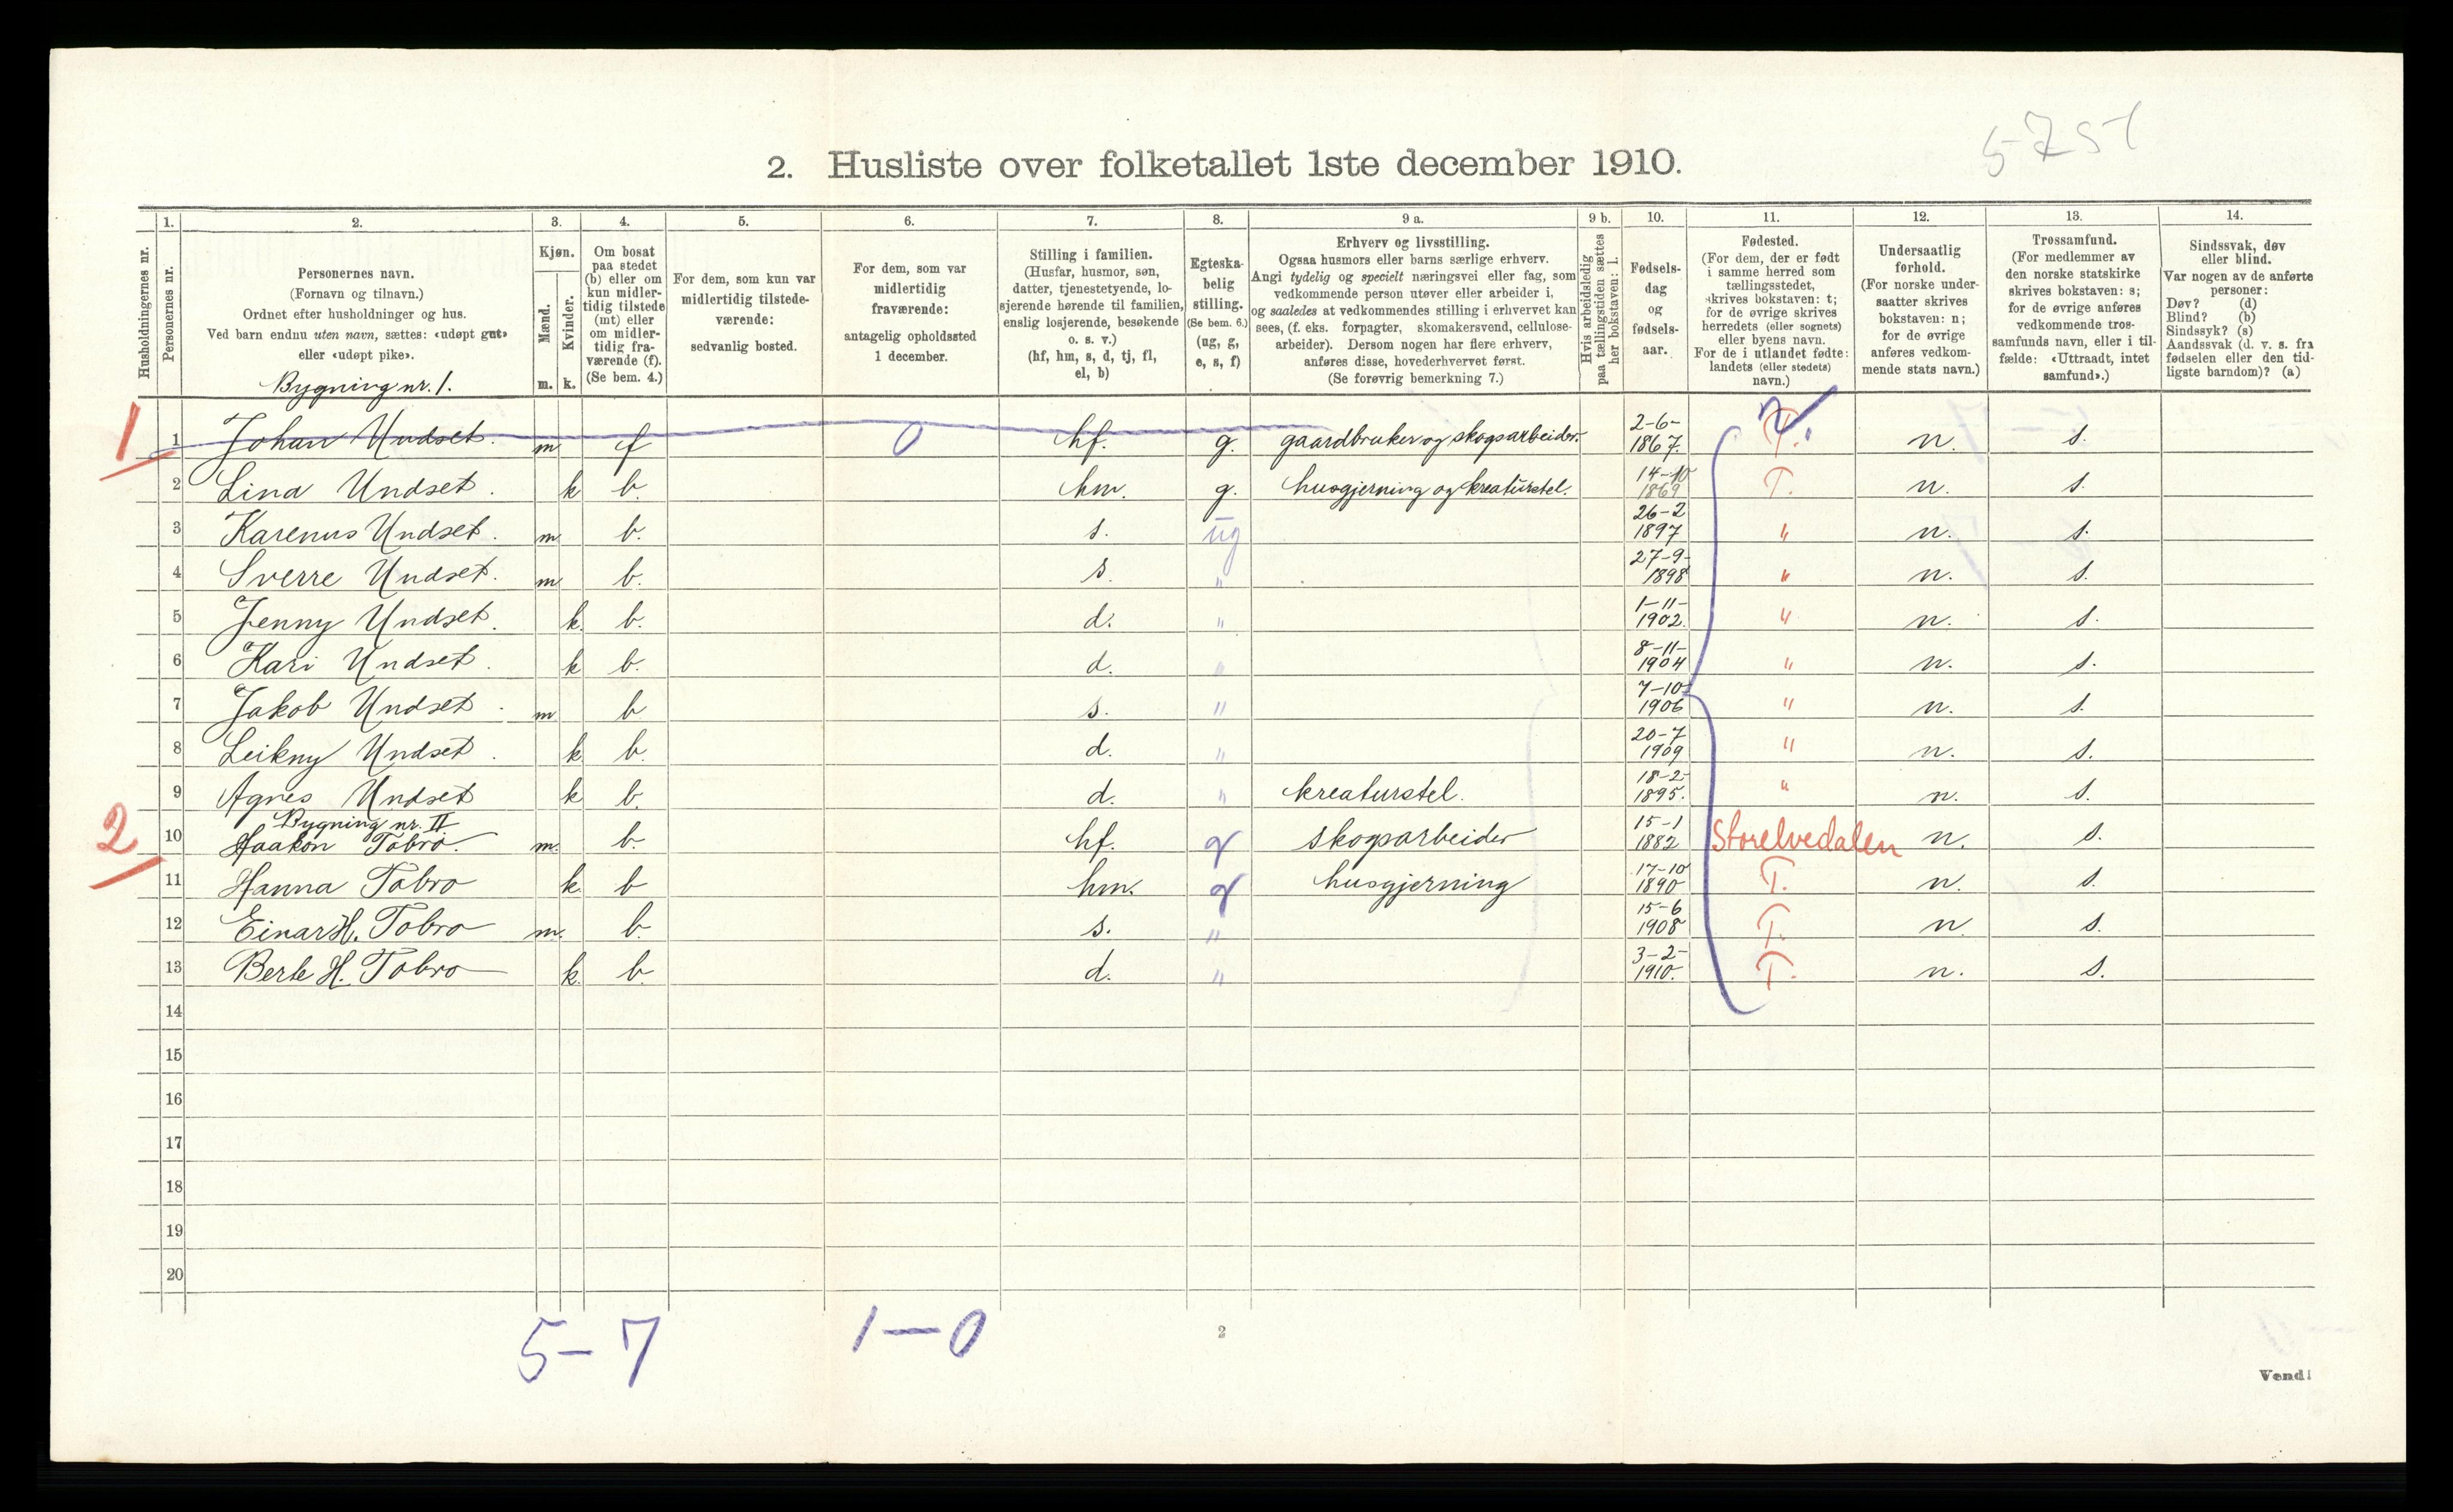 5-7 5-1
2. Husliste over folketallet 1ste december 1910.
1. 2. 3. 4. 5. 6. 7. 8. 9 a. 9 b. 10. 11. 12. 13. 14.
Husholdningernes nr.
Personernes nr.
Personernes navn.
(Fornavn og tilnavn.)
Ordnet efter husholdninger og hus.
Ved barn endnu uten navn, sættes: «udøpt gut»
eller «udøpt pike».
Bygning nr. 1.
Kjøn.
Mænd.
Kvinder.
m. k.
Om bosat
paa stedet
(b) eller om
kun midler-
tidig tilstede
(mt) eller
om midler-
tidig fra-
værende (f).
(Se bem. 4.)
For dem, som kun var
midlertidig tilstede-
værende:
sedvanlig bosted.
For dem, som var
midlertidig
fraværende:
antagelig opholdssted
1 december.
Stilling i familien.
(Husfar, husmor, søn,
datter, tjenestetyende, lo-
sjerende hørende til familien,
enslig losjerende, besøkende
o. s. v.)
(hf, hm, s, d, tj, fl,
el, b)
Egteska-
belig
stilling.
(Se bem. 6.)
(ug, g,
e, s, f)
Erhverv og livsstilling.
Ogsaa husmors eller barns særlige erhverv.
Angi tydelig og specielt næringsvei eller fag, som
vedkommende person utøver eller arbeider i,
og saaledes at vedkommendes stilling i erhvervet kan
sees, (f. eks. forpagter, skomakersvend, cellulose-
arbeider). Dersom nogen har flere erhverv,
anføres disse, hovederhvervet først.
(Se forøvrig bemerkning 7.)
Hvis arbeidsledig
paa tællingstiden sættes
her bokstaven: l.
Fødsels-
dag
og
fødsels-
aar.
Fødested.
(For dem, der er født
i samme herred som
tællingsstedet,
skrives bokstaven: t;
for de øvrige skrives
herredets (eller sognets)
eller byens navn.
For de i utlandet fødte:
landets (eller stedets)
navn.)
Undersaatlig
forhold.
(For norske under-
saatter skrives
bokstaven: n;
for de øvrige
anføres vedkom-
mende stats navn.)
Trossamfund.
(For medlemmer av
den norske statskirke
skrives bokstaven: s;
for de øvrige anføres
vedkommende tros-
samfunds navn, eller i til-
fælde: «Uttraadt, intet
samfund».)
Sindssvak, døv
eller blind.
Var nogen av de anførte
personer:
Døv? (d)
Blind? (b)
Sindssyk? (s)
Aandssvak (d. v. s. fra
fødselen eller den tid-
ligste barndom)? (a)
1 1 Johan Undset. m f 0 hf. g. gaardbruker og skogsarbeider. 2-6- 1867. T. n. s.
2 Lina Undset. k b. hm. g. husgjerning og kreaturstel. 14-10 1869 T. n. s.
3 Karenus Undset. m b. s. ug 26-2 1897 " n. s.
4 Sverre Undset. m b. s. " 27-9- 1898 " n. s.
5 Jenny Undset. k. b. d. " 1-11- 1902. " n. s.
6 Kari Undset. k b. d. " 8-11- 1904 " n. s.
7 Jakob Undset. m b s. " 7-10- 1906 " n. s.
8 Leikny Undset. k b. d. " 20-7 1909 " n. s.
9 Agnes Undset k b. d. " kreaturstel. 18-2- 1895. " n. s.
Bygning nr. II
2 10 Haakon Tobro. m. b. hf. g skogsarbeider 15-1 1882 Storelvedalen n. s.
11 Hanna Tobro k. b hm. g husgjerning 17-10 1890 T. n. s.
12 Einar H. Tobro m. b. s. " 15-6 1908 T. n s.
13 Berte H. Tobro k. b. d. " 3-2- 1910. T. n. s.
14
15
16
17
18
19
20
5-7 1-0
2
Vend!